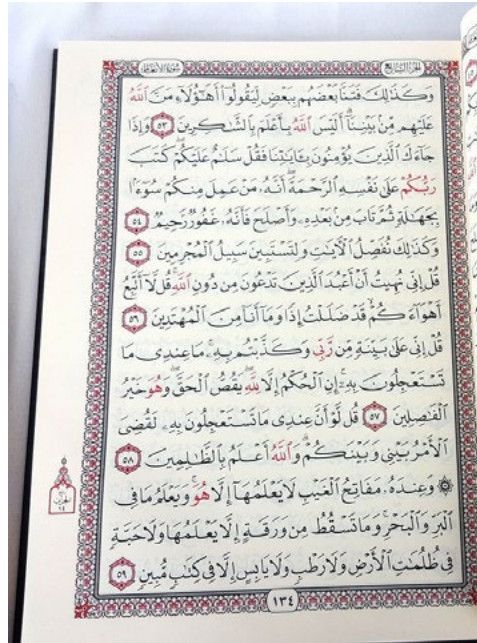 سورة الأنعام
الجزء السابع
وَكَذَٰلِكَ فَتَنَّا بَعْضَهُم بِبَعْضٍ لِّيَقُولُوٓا۟ أَهَـٰٓؤُلَآءِ مَنَّ ٱللَّهُ
عَلَيْهِم مِّنۢ بَيْنِنَآ ۗ أَلَيْسَ ٱللَّهُ بِأَعْلَمَ بِٱلشَّـٰكِرِينَ ٥٣ وَإِذَا
جَآءَكَ ٱلَّذِينَ يُؤْمِنُونَ بِـَٔايَـٰتِنَا فَقُلْ سَلَـٰمٌ عَلَيْكُمْ ۖ كَتَبَ
رَبُّكُمْ عَلَىٰ نَفْسِهِ ٱلرَّحْمَةَ ۖ أَنَّهُۥ مَنْ عَمِلَ مِنكُمْ سُوٓءًۢا
بِجَهَـٰلَةٍ ثُمَّ تَابَ مِنۢ بَعْدِهِۦ وَأَصْلَحَ فَأَنَّهُۥ غَفُورٌ رَّحِيمٌ ٥٤
وَكَذَٰلِكَ نُفَصِّلُ ٱلْـَٔايَـٰتِ وَلِتَسْتَبِينَ سَبِيلُ ٱلْمُجْرِمِينَ ٥٥
قُلْ إِنِّى نُهِيتُ أَنْ أَعْبُدَ ٱلَّذِينَ تَدْعُونَ مِن دُونِ ٱللَّهِ ۚ قُل لَّآ أَتَّبِعُ
أَهْوَآءَكُمْ ۙ قَدْ ضَلَلْتُ إِذًا وَمَآ أَنَا۠ مِنَ ٱلْمُهْتَدِينَ ٥٦
قُلْ إِنِّى عَلَىٰ بَيِّنَةٍ مِّن رَّبِّى وَكَذَّبْتُم بِهِۦ ۚ مَا عِندِى مَا
تَسْتَعْجِلُونَ بِهِۦٓ ۚ إِنِ ٱلْحُكْمُ إِلَّا لِلَّهِ ۖ يَقُصُّ ٱلْحَقَّ ۖ وَهُوَ خَيْرُ
ٱلْفَـٰصِلِينَ ٥٧ قُل لَّوْ أَنَّ عِندِى مَا تَسْتَعْجِلُونَ بِهِۦ لَقُضِىَ
ٱلْأَمْرُ بَيْنِى وَبَيْنَكُمْ ۗ وَٱللَّهُ أَعْلَمُ بِٱلظَّـٰلِمِينَ ٥٨
۞ وَعِندَهُۥ مَفَاتِحُ ٱلْغَيْبِ لَا يَعْلَمُهَآ إِلَّا هُوَ ۚ وَيَعْلَمُ مَا فِى
ٱلْبَرِّ وَٱلْبَحْرِ ۚ وَمَا تَسْقُطُ مِن وَرَقَةٍ إِلَّا يَعْلَمُهَا وَلَا حَبَّةٍ
فِى ظُلُمَـٰتِ ٱلْأَرْضِ وَلَا رَطْبٍ وَلَا يَابِسٍ إِلَّا فِى كِتَـٰبٍ مُّبِينٍ ٥٩
١٣٤